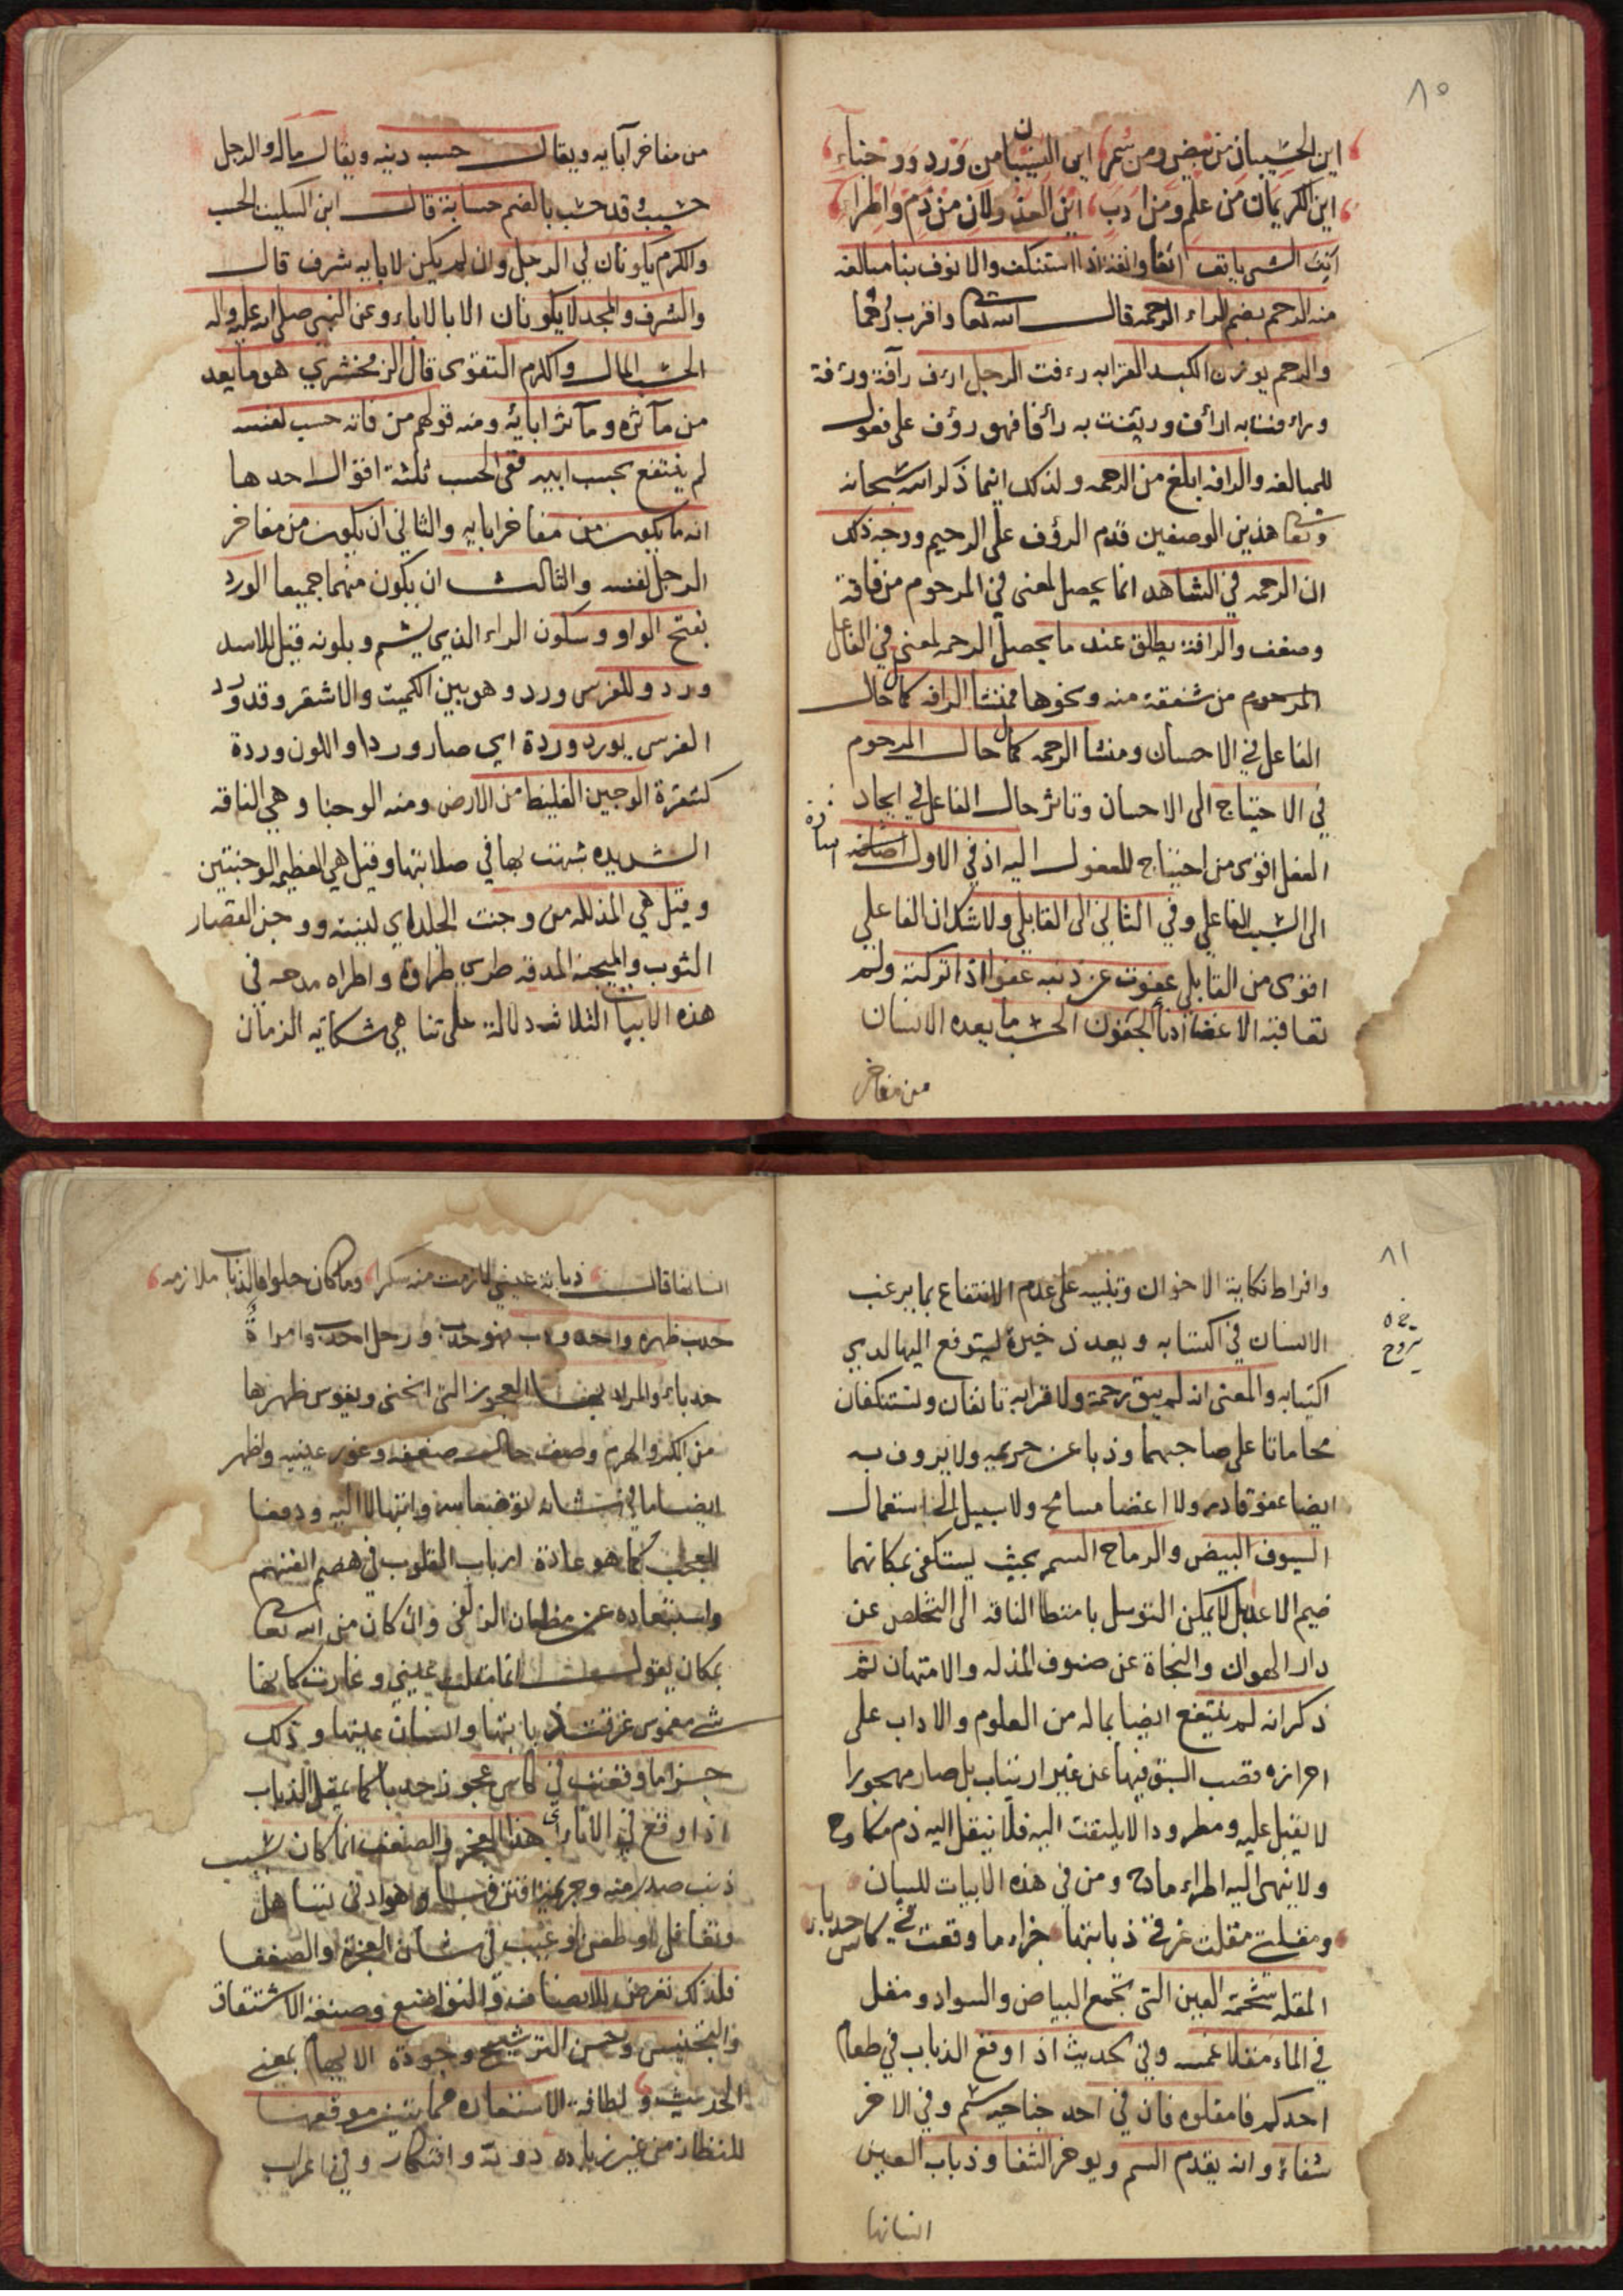 ٨٥
اين الحسيبان من بيض ومن سمر اين النسيبان من ورد ووجناء
اين الكريمان من علم ومن ادب اين العذولان من ذم واطراء
انف الشى يانف انفا وانفة اذا استنكف والانوف بنا مبالغه
منه الرحم بضم الراء الرحمة قال الله تعا واقرب رحما
والرحم بوزن الكبد القرابه رءفت الرجل ارءف رآفة ورءفة
وراءفت به ارأف ورئفت به رأفا فهو رؤف على فعول
للمبالغه والرافه ابلغ من الرحمه ولذلك اينما ذكر الله سبحانه
وتعا هذين الوصفين قدم الرؤف على الرحيم ووجه ذلك
ان الرحمه في الشاهد انما يحصل لمعنى في المرحوم من فاقة
وضعف والرافة يطلق عند ما يحصل الرحمه لمعنى في الفاعل
المرحوم من شفقة منه ونحوها فمنشا الرافه كمال حال
الفاعل في الاحسان ومنشا الرحمه كمال حال المرحوم
في الاحتياج الى الاحسان وتاثر حال الفاعل في ايجاد
الفعل اقوى من احتياج المفعول اليه اذ في الاول
الى السبب الفاعلي وفي الثاني الى القابلي ولا شك ان الفاعلي
اقوى من القابلي عفوت عن ذنبه عفوا اذا تركته ولم
تعاقبه الاغضا ادنا الجفون الحسب ما يعده الانسان
من مفاخر
من مفاخر آبايه ويقال حسب دينه ويقال ماله والرجل
حسيب وقد حسب بالضم حسابة قال ابن السكيت الحسب
والكرم يكونان في الرجل وان لم يكن لابايه شرف قال
والشرف والمجد لا يكونان الا بالاباء وعن النبي صلى الله عليه واله
الحسب المال والكرم التقوى قال الزمخشري هو ما يعد
من مآثره ومآثر ابائه ومنه قولهم من فاته حسب لفسه
لم ينتفع بحسب ابيه ففي الحسب ثلثة اقوال احدها
انه ما يكون من مفاخر ابايه والثاني ان يكون من مفاخر
الرجل لفسه والثالث ان يكون منهما جميعا الورد
بفتح الواو وسكون الراء الذي يشم وبلونه قيل للاسد
ورد وللفرس ورد وهو بين الكميت والاشقر وقد ورد
الفرس يورد وردة اي صار وردا واللون وردة
كشقرة الوجين الغليظ من الارض ومنه الوجنا وهي الناقه
الشديده شبهت بها في صلابتها وقيل هي العظيمه الوجنتين
وقيل هي المذلله من وجنت الجلد اي لينته ووجن القصار
الثوب والميجنه المدقه طرى طراوة واطراه مدحه في
هذه الابيات الثلاث دلالة على تناهي شكايه الزمان
٨١
وافراط نكاية الاخوان وتنبيه على عدم الانتفاع بما يرغب
الانسان في اكتسابه ويعد ذخيرة ليتوقع اليها لدي
اكتيابه والمعنى انه لم يبق رحمة ولا قرابه تانفان وتستنكفان
محاماتا على صاحبهما وذبا عن حريمه ولا يروف به
ايضا عفو قادر ولا اغضا مسامح ولا سبيل الى استعمال
السيوف البيض والرماح السمر بحيث يستكفى بمكانهما
ضيم الاعدا بل لا يمكن التوسل بامتطا الناقه الى التخلص عن
دار الهوان والنجاة عن صنوف المذله والامتهان ثم
ذكر انه لم ينتفع ايضا بما له من العلوم والاداب على
احرازه قصب السبق فيها عن غير ارتياب بل صار مهجورا
لا يقبل عليه ومطرودا لا يلتفت اليه فلا ينتقل اليه ذم مكاوح
ولا ينهى اليه اطراء مادح ومن في هذه الابيات للبيان
ومقلتي مقلت غرقى ذبابتها جزاء ما وقعت في كاس حدباء
المقله شحمة العين التي تجمع البياض والسواد ومقل
في الماء مقلا غمسه وفي الحديث اذا وقع الذباب في طعام
احدكم فامقلوه فان في احد جناحيه سم وفي الاخر
شفاء وانه يقدم السم ويوخر الشفا وذباب العين
انسانها
انسانها قال ذبابة عيني لازمت منه سكرا وما كان حلوا فالذباب ملازمه
حدب ظهره واحدودب فهو حدب ورجل احدب وامراة
حدباء والمراد بها العجوز التي انحنى ويقوس ظهرها
من الكبر والهرم وصف حال ضعفه وغور عينيه واظهر
ايضا ما في شانه تواضعا لله وابتهالا اليه ودفعا
للعجب كما هو عادة ارباب القلوب في هضم انفسهم
واستبعاده عن مظان الزلفى وان كان من الله تعا
بمكان يقول انما مقلت عيني وغارت كانها
شي مغموس غرقت ذبابتها وانسان عينها وذلك
جزاما وقعت في كاس عجوز حدبا كما يمقل الذباب
اذا وقع في الانا اي هذا العجز والضعف انما كان بسبب
ذنب صدر منه وجريمة
وتغافل او طعن او عيب في شان العجزة والضعفا
فلذلك تعرض للانصاف والتواضع وصنعة الاشتقاق
والتجنيس وحسن الترشيح وجودة الايهام بمعنى
الحديث ولطافة الاستعاره مما يتبين موقعها
للنظار من غير زياده روية وافتكار وفي اعراب